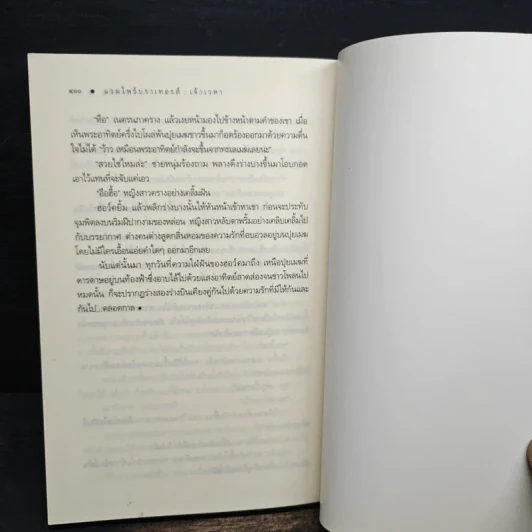 ๒๐๐ ● แวมไพร์บราเทอร์ส์ : เจ้าเวหา
"หือ" เนตรนภาคราง แล้วเงยหน้ามองไปข้างหน้าตามคำของเขา เมื่อ
เห็นพระอาทิตย์ครึ่งไปโผล่พ้นปุยเมฆขาวขึ้นมาก็อดร้องออกมาด้วยความตื่น
ใจไม่ได้ "ว้าว เหมือนพระอาทิตย์กำลังจะขึ้นจากทะเลเมฆเลยนะ"
"สวยใช่ไหมล่ะ" ชายหนุ่มร้องถาม พลางดึงร่างบางขึ้นมาโอบกอด
เอาไว้แทนที่จะจับแค่เอว
"อือฮื้อ" หญิงสาวครางอย่างเคลิ้มฝัน
ฮอว์คยิ้ม แล้วพลิกร่างบางนั้นให้หันหน้าเข้าหาเขา ก่อนจะประทับ
จุมพิตลงบนริมฝีปากงามของหล่อน หญิงสาวหลับตาพริ้มอย่างเคลิบเคลิ้มไป
กับบรรยากาศ ต่างคนต่างสูดกลิ่นหอมของความรักที่อบอวลอยู่บนปุยเมฆ
โดยไม่มีใครเอื้อนเอ่ยคำใดๆ ออกมาอีกเลย
นับแต่นั้นมา ทุกวันที่ความใฝ่ฝันของฮอว์คมาถึง เหนือปุยเมฆที่
ดารดาษอยู่บนท้องฟ้าซึ่งอาบไล้ไปด้วยแสงอาทิตย์สาดส่องจนขาวโพลนไป
หมดนั้น ก็จะปรากฏร่างสองร่างบินเคียงคู่กันไปด้วยความรักที่มีให้กันและ
กันไป...ตลอดกาล ●